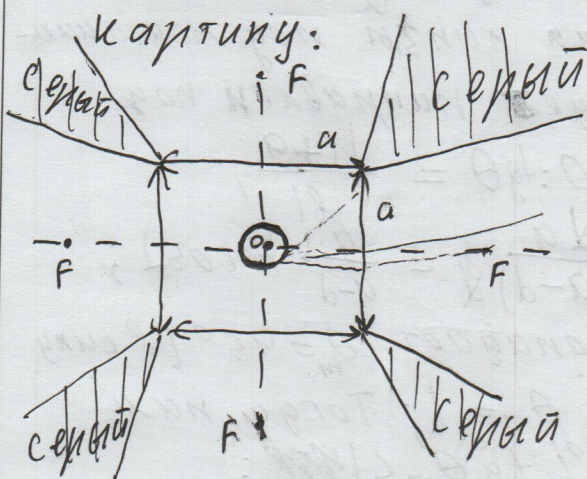 картину:
F
серый
серый
a
a
O
F
F
F
серый
серый